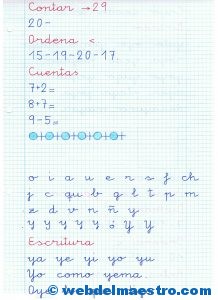 Contar → 29.
20-
Ordena <
15-19-20-17.
Cuentas
7+2=
8+7=
9-5=
o i a u e r s f ch
j c qu b g l t p m
z d v n ñ y
Y Y Y Y Y ó Y Y
Escritura
ya ye yi yo yu
Yo como yema.
© webdelmaestro.com